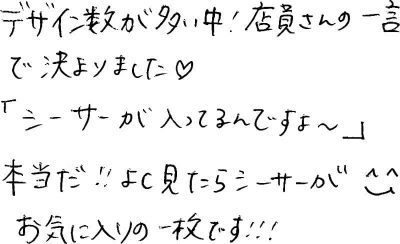 デザイン数が多い中!店員さんの一言
で決まりました♡
「シーサーが入ってるんですよ〜」
本当だ!!よく見たらシーサーが^^
お気に入りの一枚です!!!